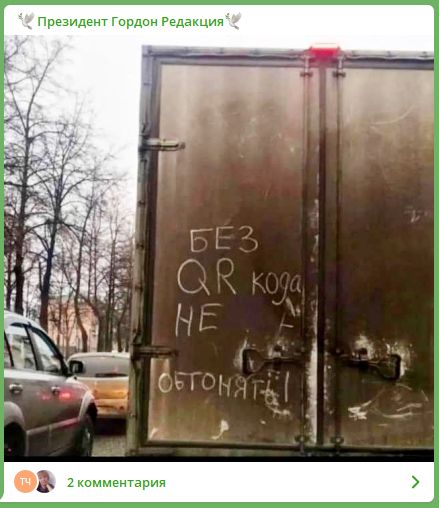 🕊Президент Гордон Редакция🕊
БЕЗ
QR кода
НЕ
ОБГОНЯТЬ!
ТЧ
2 комментария